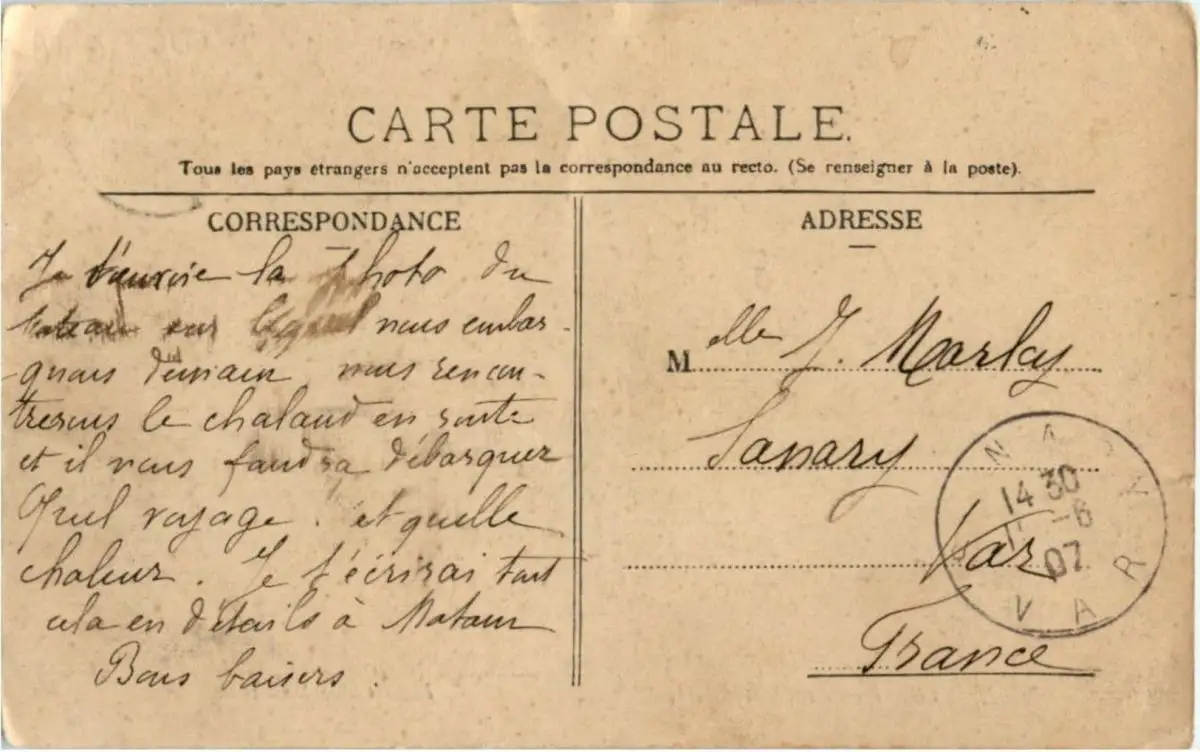 CARTE POSTALE.
Tous les pays étrangers n'acceptent pas la correspondance au recto. (Se renseigner à la poste).
CORRESPONDANCE
Je t'envoie la photo du
bateau sur lequel nous embar-
quons demain nous rencon-
trerons le chaland en route
et il nous faudra débarquer
Quel voyage. et quelle
chaleur. Je t'écrirai tout
cela en détails à Matam
Bons baisers.
ADRESSE
Melle J. Marlay
Sanary
Var
France
SANARY
14 30
11 -6
07
VAR